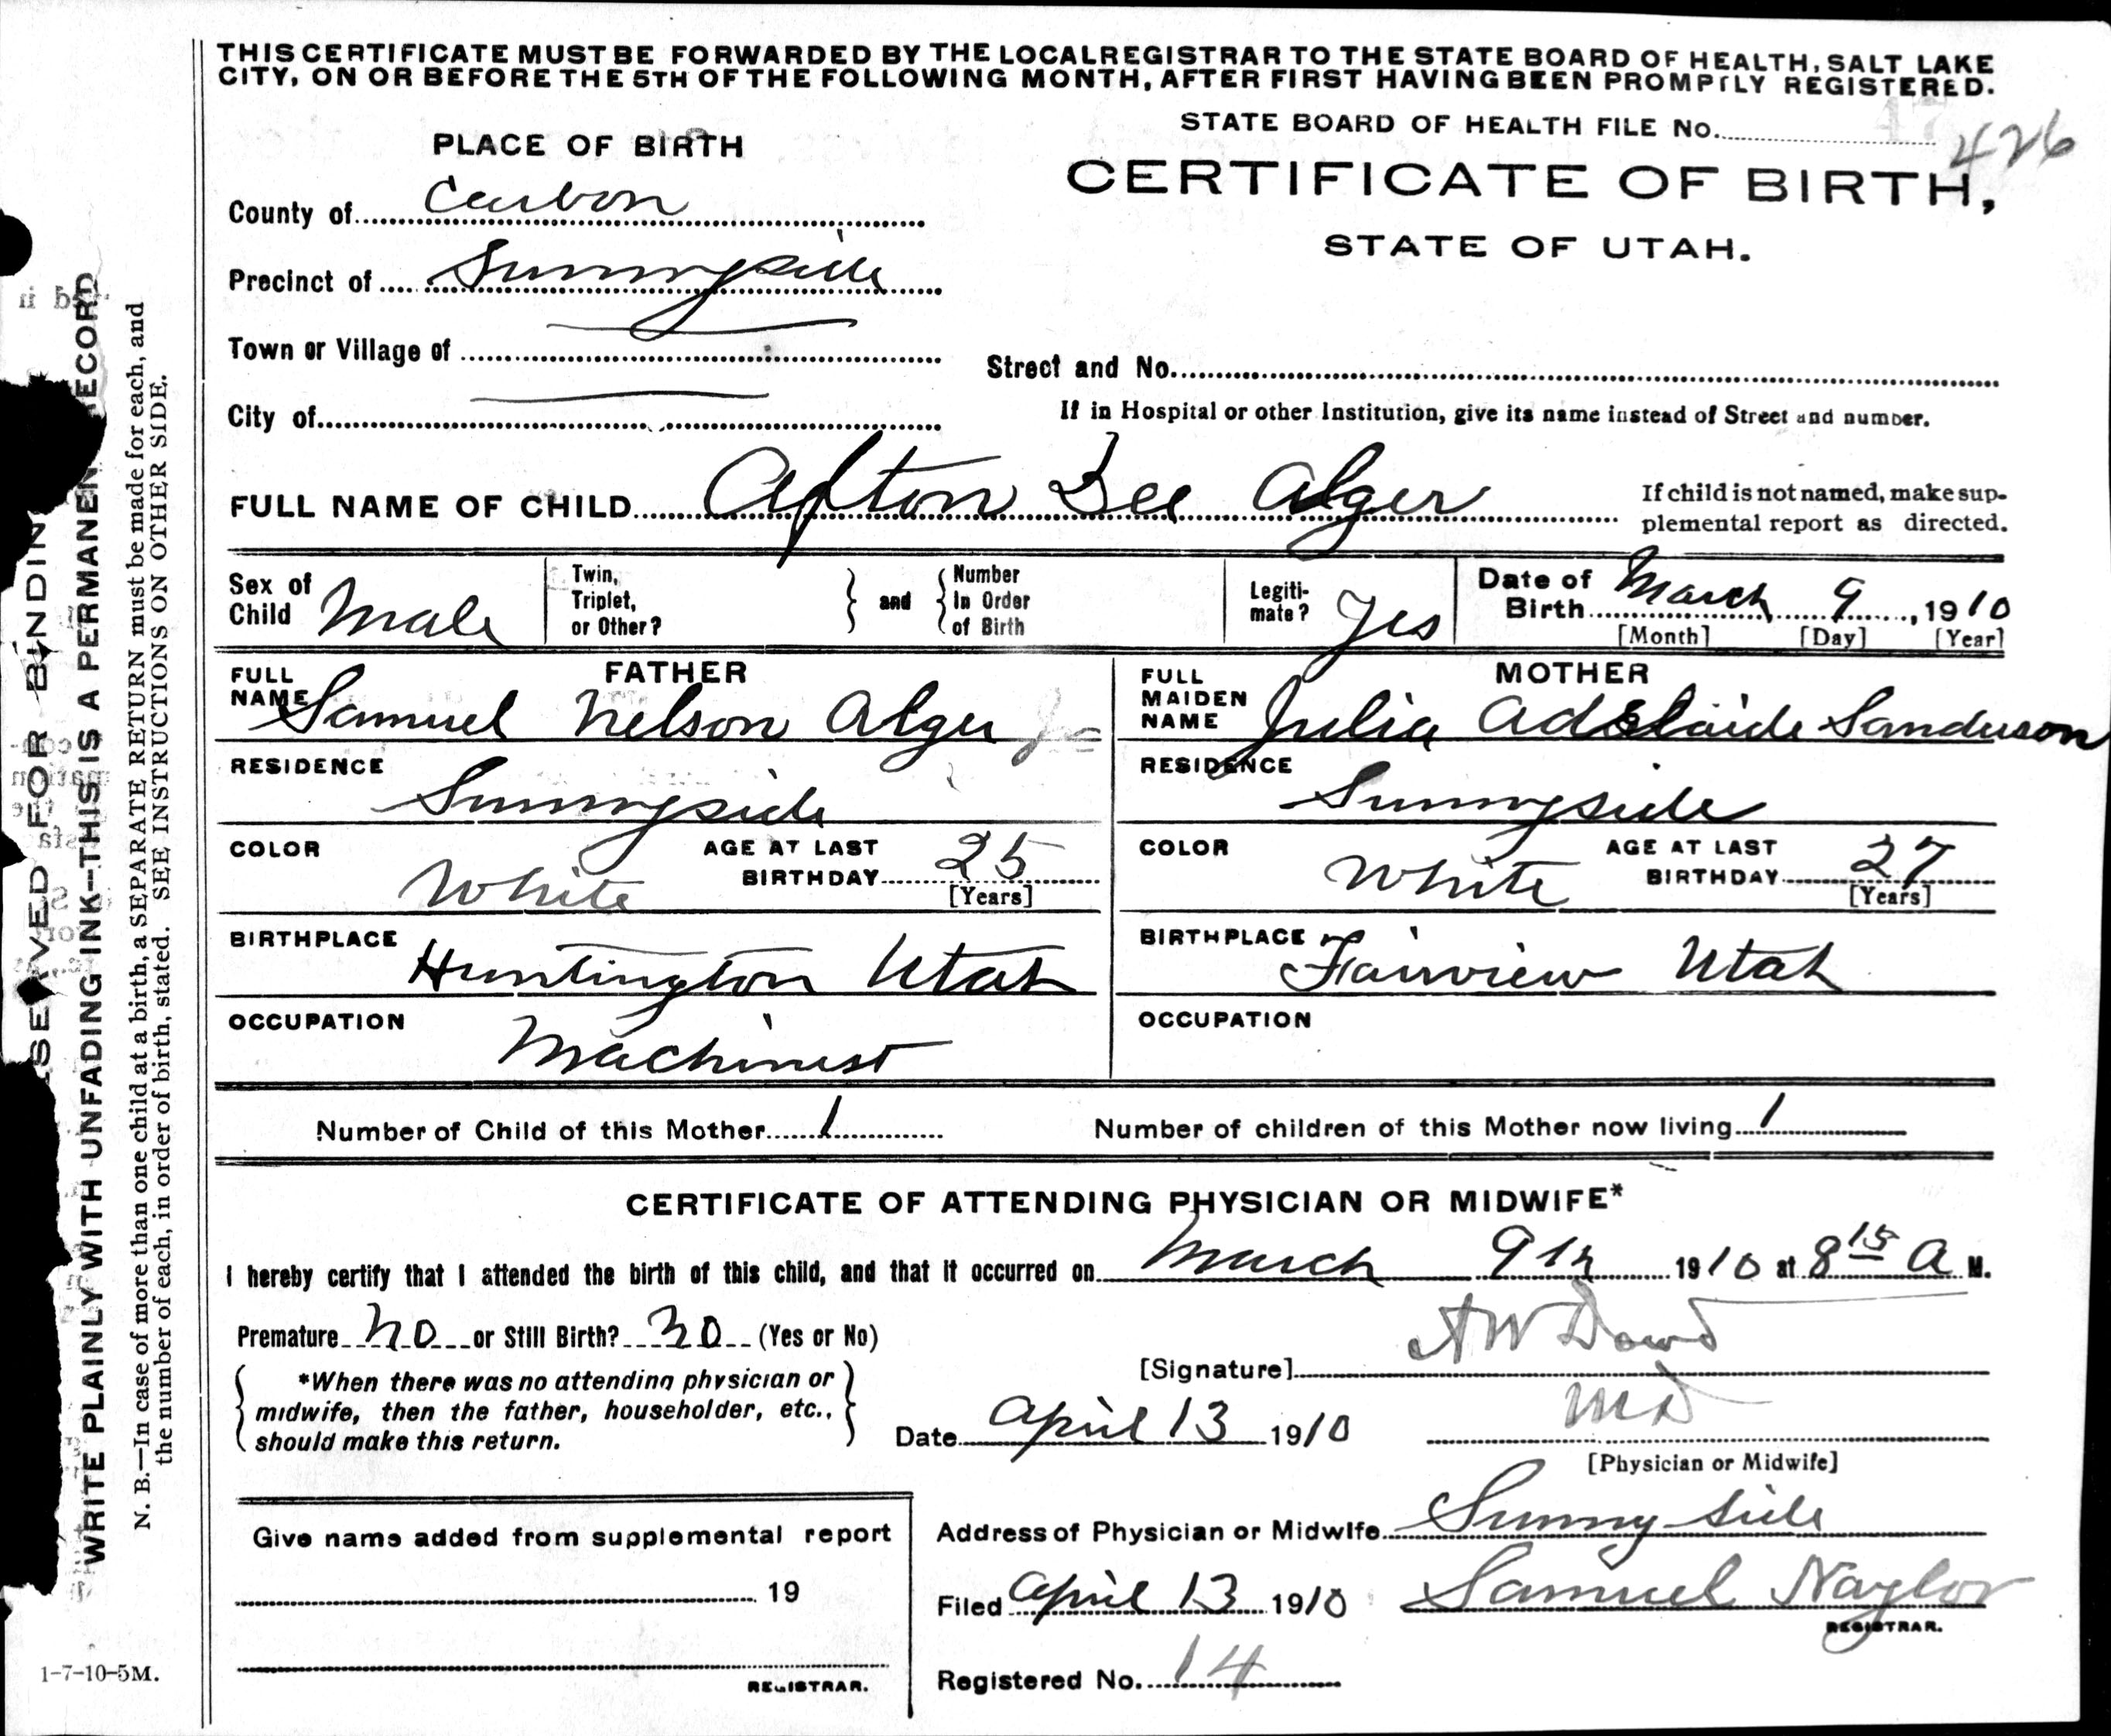 THIS CERTIFICATE MUST BE FORWARDED BY THE LOCAL REGISTRAR TO THE STATE BOARD OF HEALTH, SALT LAKE
CITY, ON OR BEFORE THE 5TH OF THE FOLLOWING MONTH, AFTER FIRST HAVING BEEN PROMPTLY REGISTERED.
STATE BOARD OF HEALTH FILE No. 426
PLACE OF BIRTH
CERTIFICATE OF BIRTH,
STATE OF UTAH.
County of Carbon
Precinct of Sunnyside
Town or Village of
Street and No.
City of
If in Hospital or other Institution, give its name instead of Street and number.
FULL NAME OF CHILD Afton Dee Alger
If child is not named, make sup-
plemental report as directed.
Sex of Child Male
Twin, Triplet, or Other?
and
Number In Order of Birth
Legiti-
mate? Yes
Date of Birth March 9, 1910
[Month] [Day] [Year]
FATHER
FULL NAME Samuel Nelson Alger Jr
MOTHER
FULL MAIDEN NAME Julia Adelaide Sanderson
RESIDENCE Sunnyside
RESIDENCE Sunnyside
COLOR White AGE AT LAST BIRTHDAY 25 [Years]
COLOR White AGE AT LAST BIRTHDAY 27 [Years]
BIRTHPLACE Huntington Utah
BIRTHPLACE Fairview Utah
OCCUPATION Machinist
OCCUPATION
Number of Child of this Mother 1
Number of children of this Mother now living 1
CERTIFICATE OF ATTENDING PHYSICIAN OR MIDWIFE*
I hereby certify that I attended the birth of this child, and that it occurred on March 9th 1910 at 8 15 A M.
Premature No or Still Birth? No (Yes or No)
*When there was no attending physician or
midwife, then the father, householder, etc.,
should make this return.
[Signature] A W Dowd
Date April 13 1910
MD
[Physician or Midwife]
Give name added from supplemental report
19
REGISTRAR.
Address of Physician or Midwife Sunny side
Filed April 13 1910 Samuel Naylor
REGISTRAR.
Registered No. 14
FOR BINDIN
WRITE PLAINLY WITH UNFADING INK—THIS IS A PERMANEN RECORD
N. B.—In case of more than one child at a birth, a SEPARATE RETURN must be made for each, and
the number of each, in order of birth, stated. SEE INSTRUCTIONS ON OTHER SIDE.
1-7-10-5M.